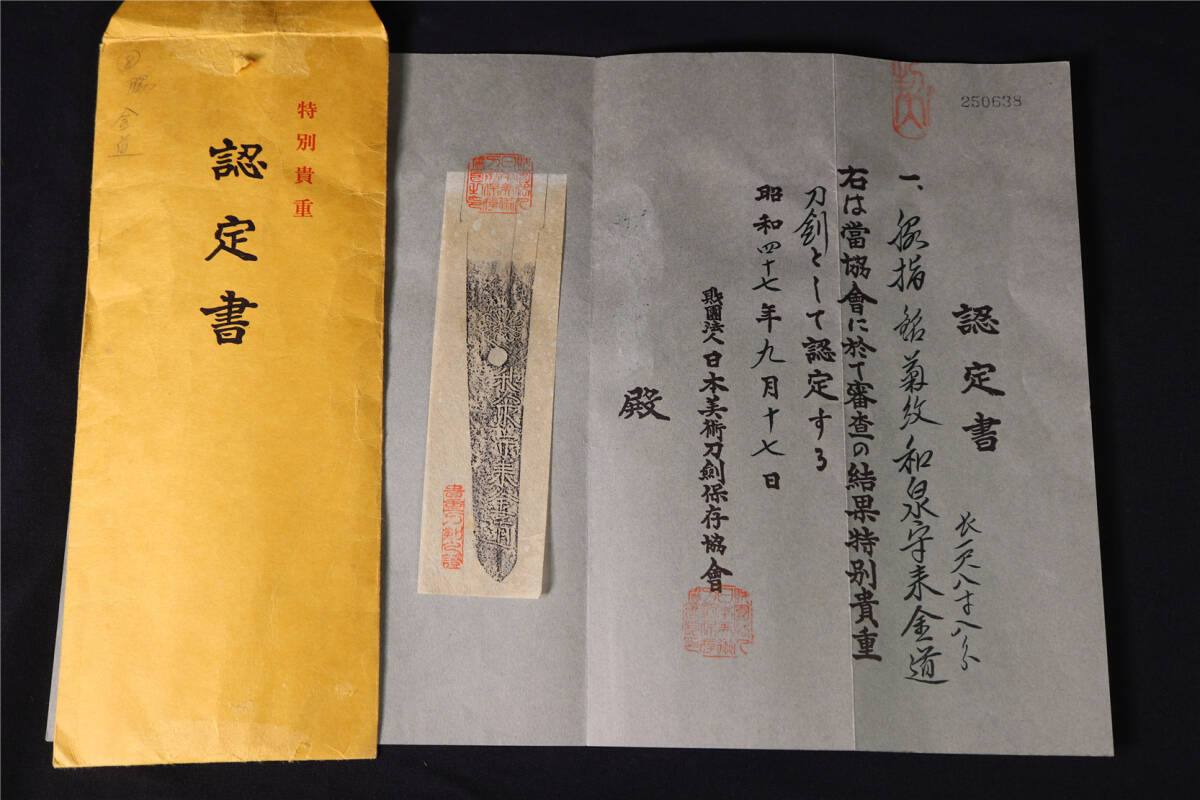 特別貴重
認定書
金道
250638
認定書
一、脇指 銘 菊紋 和泉守来金道
長一尺八寸八分
右は當協會に於て審査の結果特別貴重
刀剣として認定する
昭和四十七年九月十七日
財團法人日本美術刀剣保存協會
殿
和泉守来金道